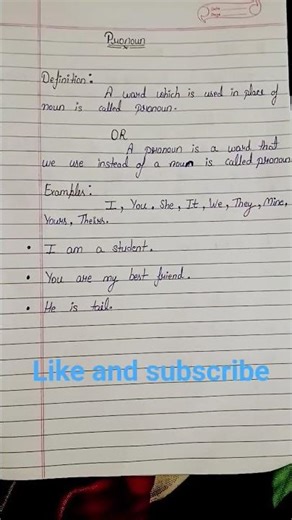 Pronoun
Definition:
A word which is used in place of
noun is called pronoun.
OR
A pronoun is a word that
we use instead of a noun is called pronoun
Examples:
I, You, She, It, We, They, Mine,
Yours, Theirs.
• I am a student.
• You are my best friend.
• He is tall.
Like and subscribe